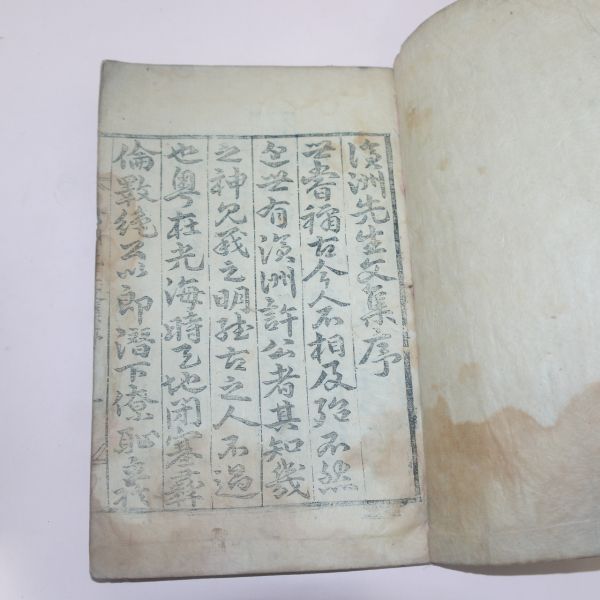 滄洲先生文集序
世嘗稱古今人不相及殆不然
近世有滄洲許公者其知幾
之神見義之明雖古之人不過
也粤在光海時天地閉塞彝
倫斁絶公以郎潛下僚耻立扵